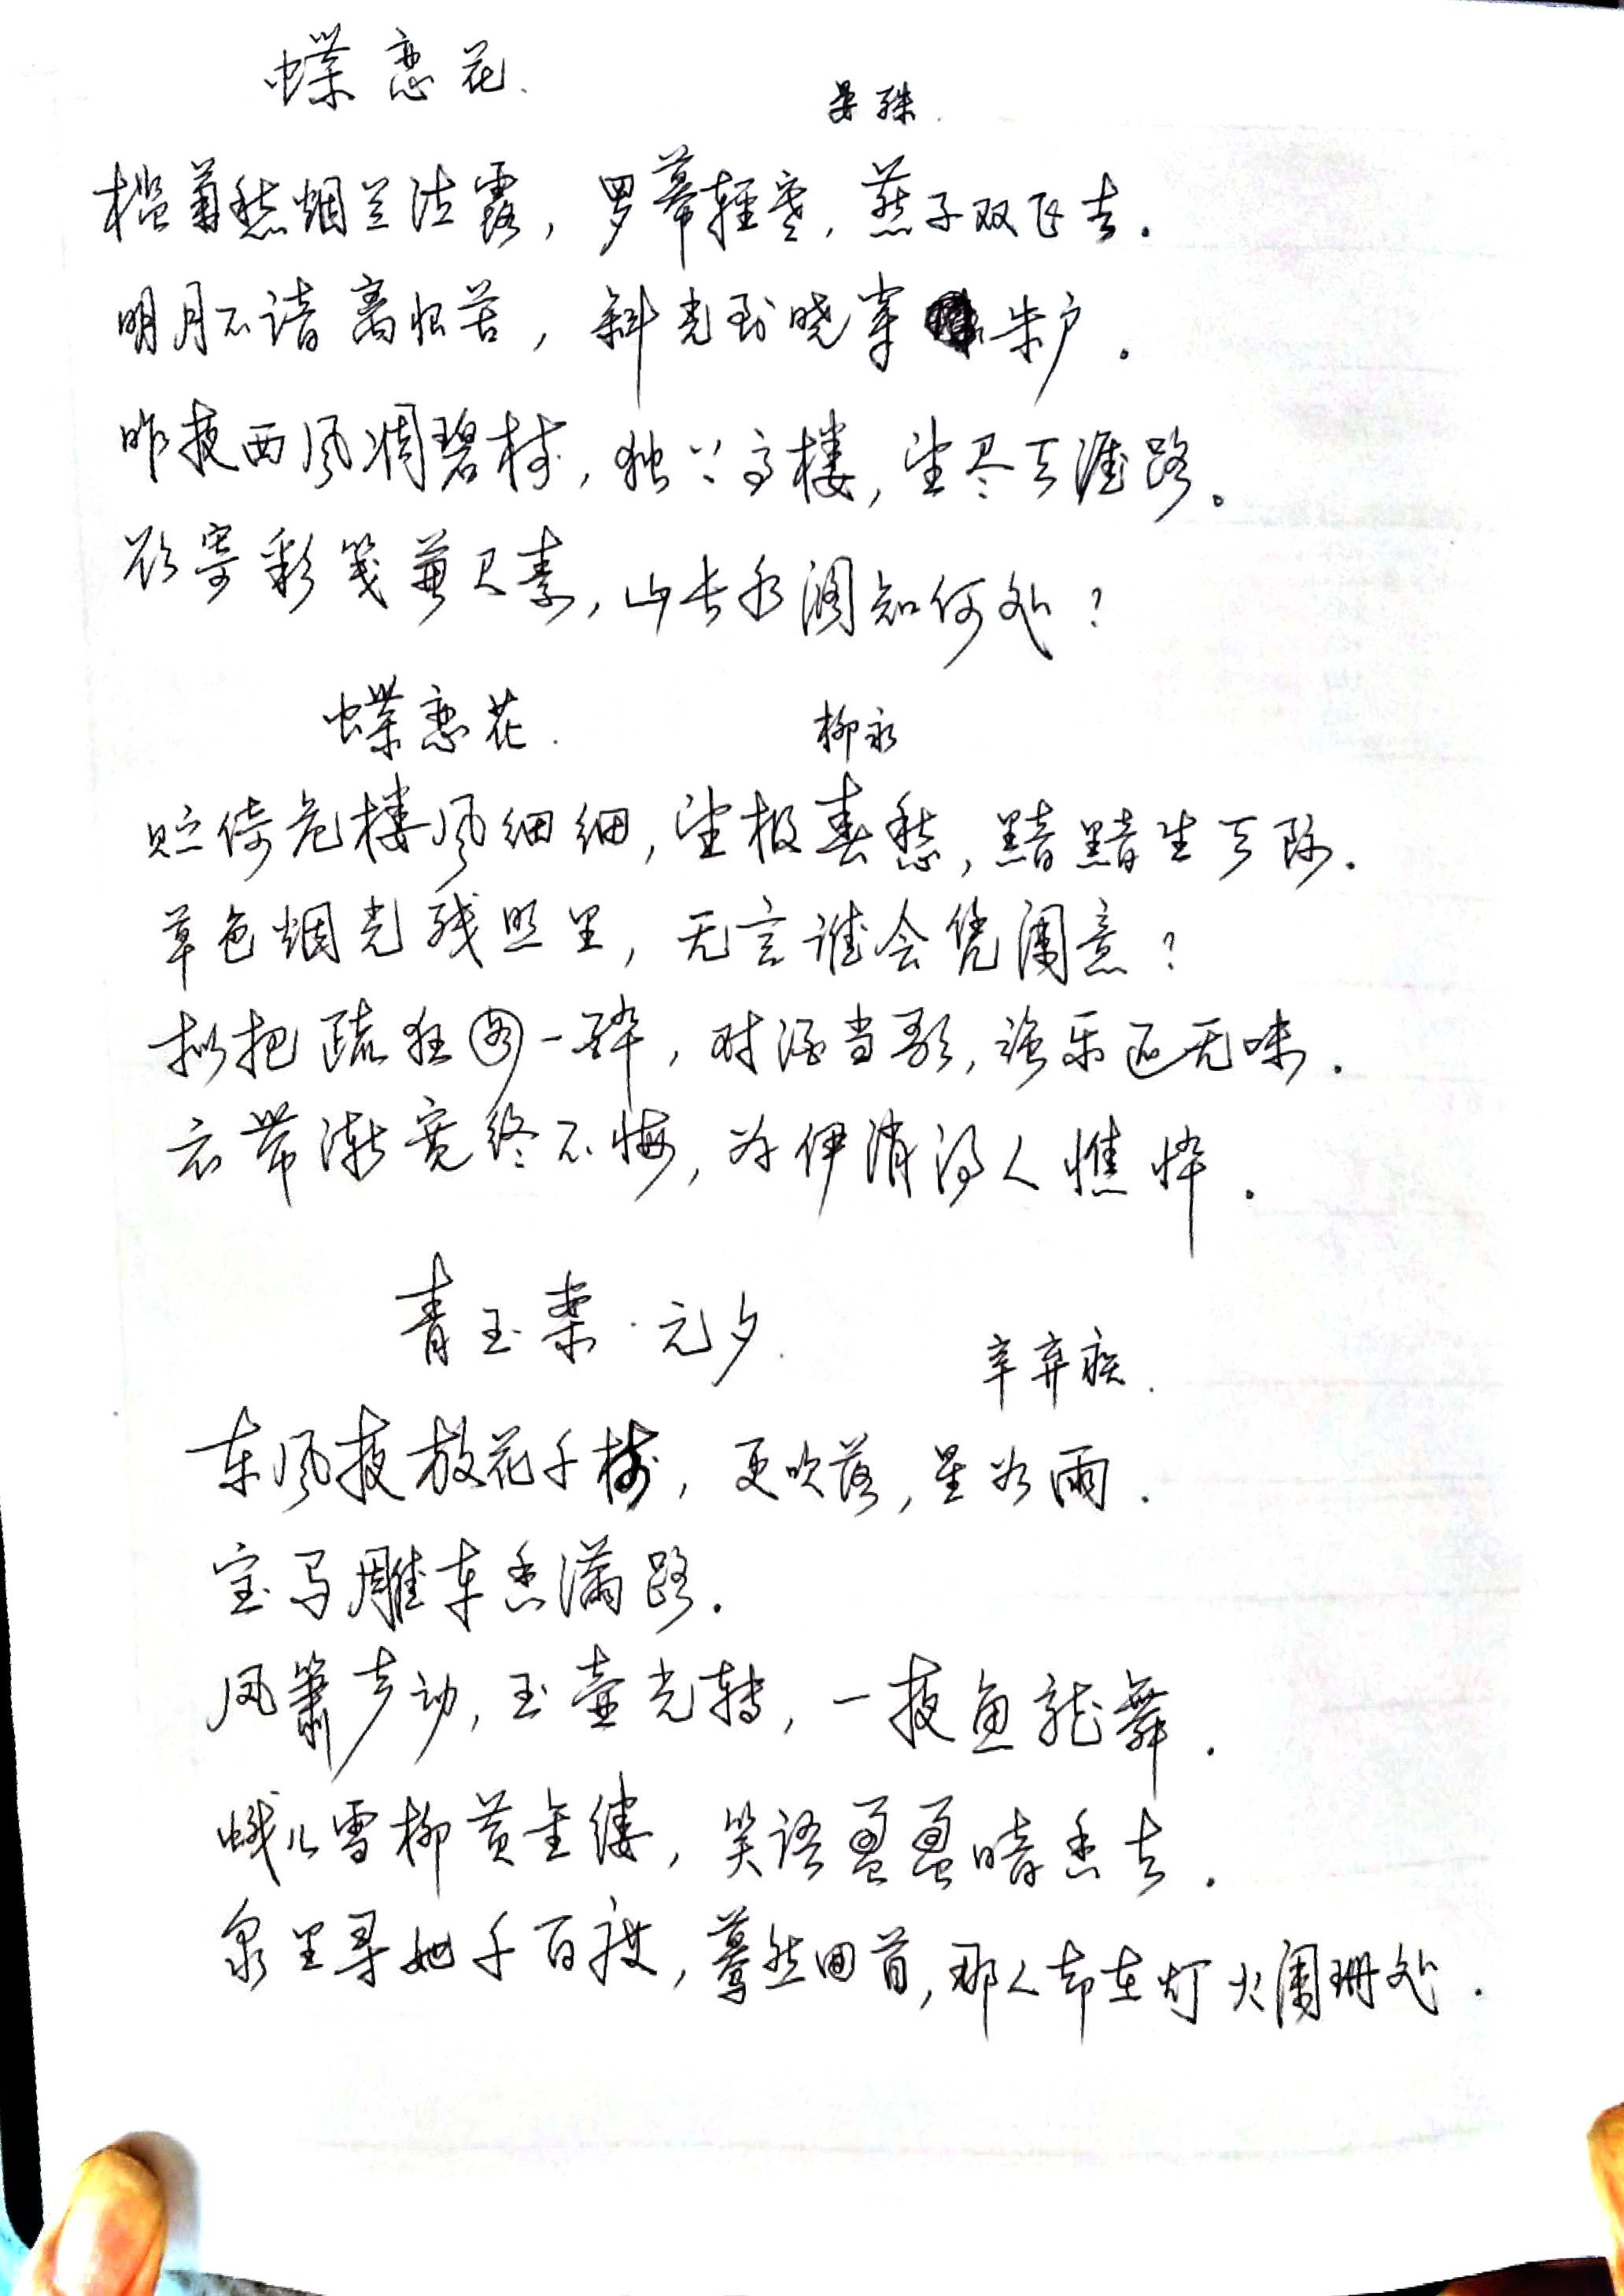 蝶恋花.
晏殊.
槛菊愁烟兰泣露,罗幕轻寒,燕子双飞去.
明月不谙离恨苦,斜光到晓穿朱户.
昨夜西风凋碧树,独上高楼,望尽天涯路。
欲寄彩笺兼尺素,山长水阔知何处?
蝶恋花.
柳永
贮倚危楼风细细,望极春愁,黯黯生天际.
草色烟光残照里,无言谁会凭阑意?
拟把疏狂图一醉,对酒当歌,强乐还无味.
衣带渐宽终不悔,为伊消得人憔悴.
青玉案·元夕.
辛弃疾.
东风夜放花千树,更吹落,星如雨.
宝马雕车香满路.
凤箫声动,玉壶光转,一夜鱼龙舞.
蛾儿雪柳黄金缕,笑语盈盈暗香去.
众里寻她千百度,蓦然回首,那人却在灯火阑珊处.